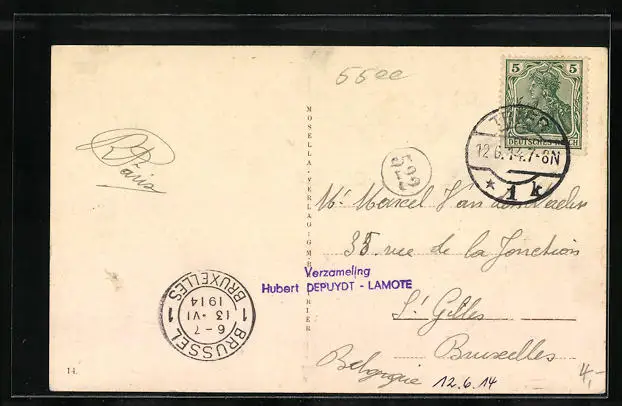 55
5
5
DEUTSCHES REICH
TRIER
12.6.14.7-8N
* 1 k
522
MOSELLA-VERLAG G.M.B.H. TRIER
Paris
Mr Marcel Van
35 rue de la Jonction
St Gilles
Bruxelles
Belgique
12.6.14
Verzameling
Hubert DEPUYDT - LAMOTE
BRUSSEL
1 1
6-7
13·VI
1914
BRUXELLES
14.
4,-